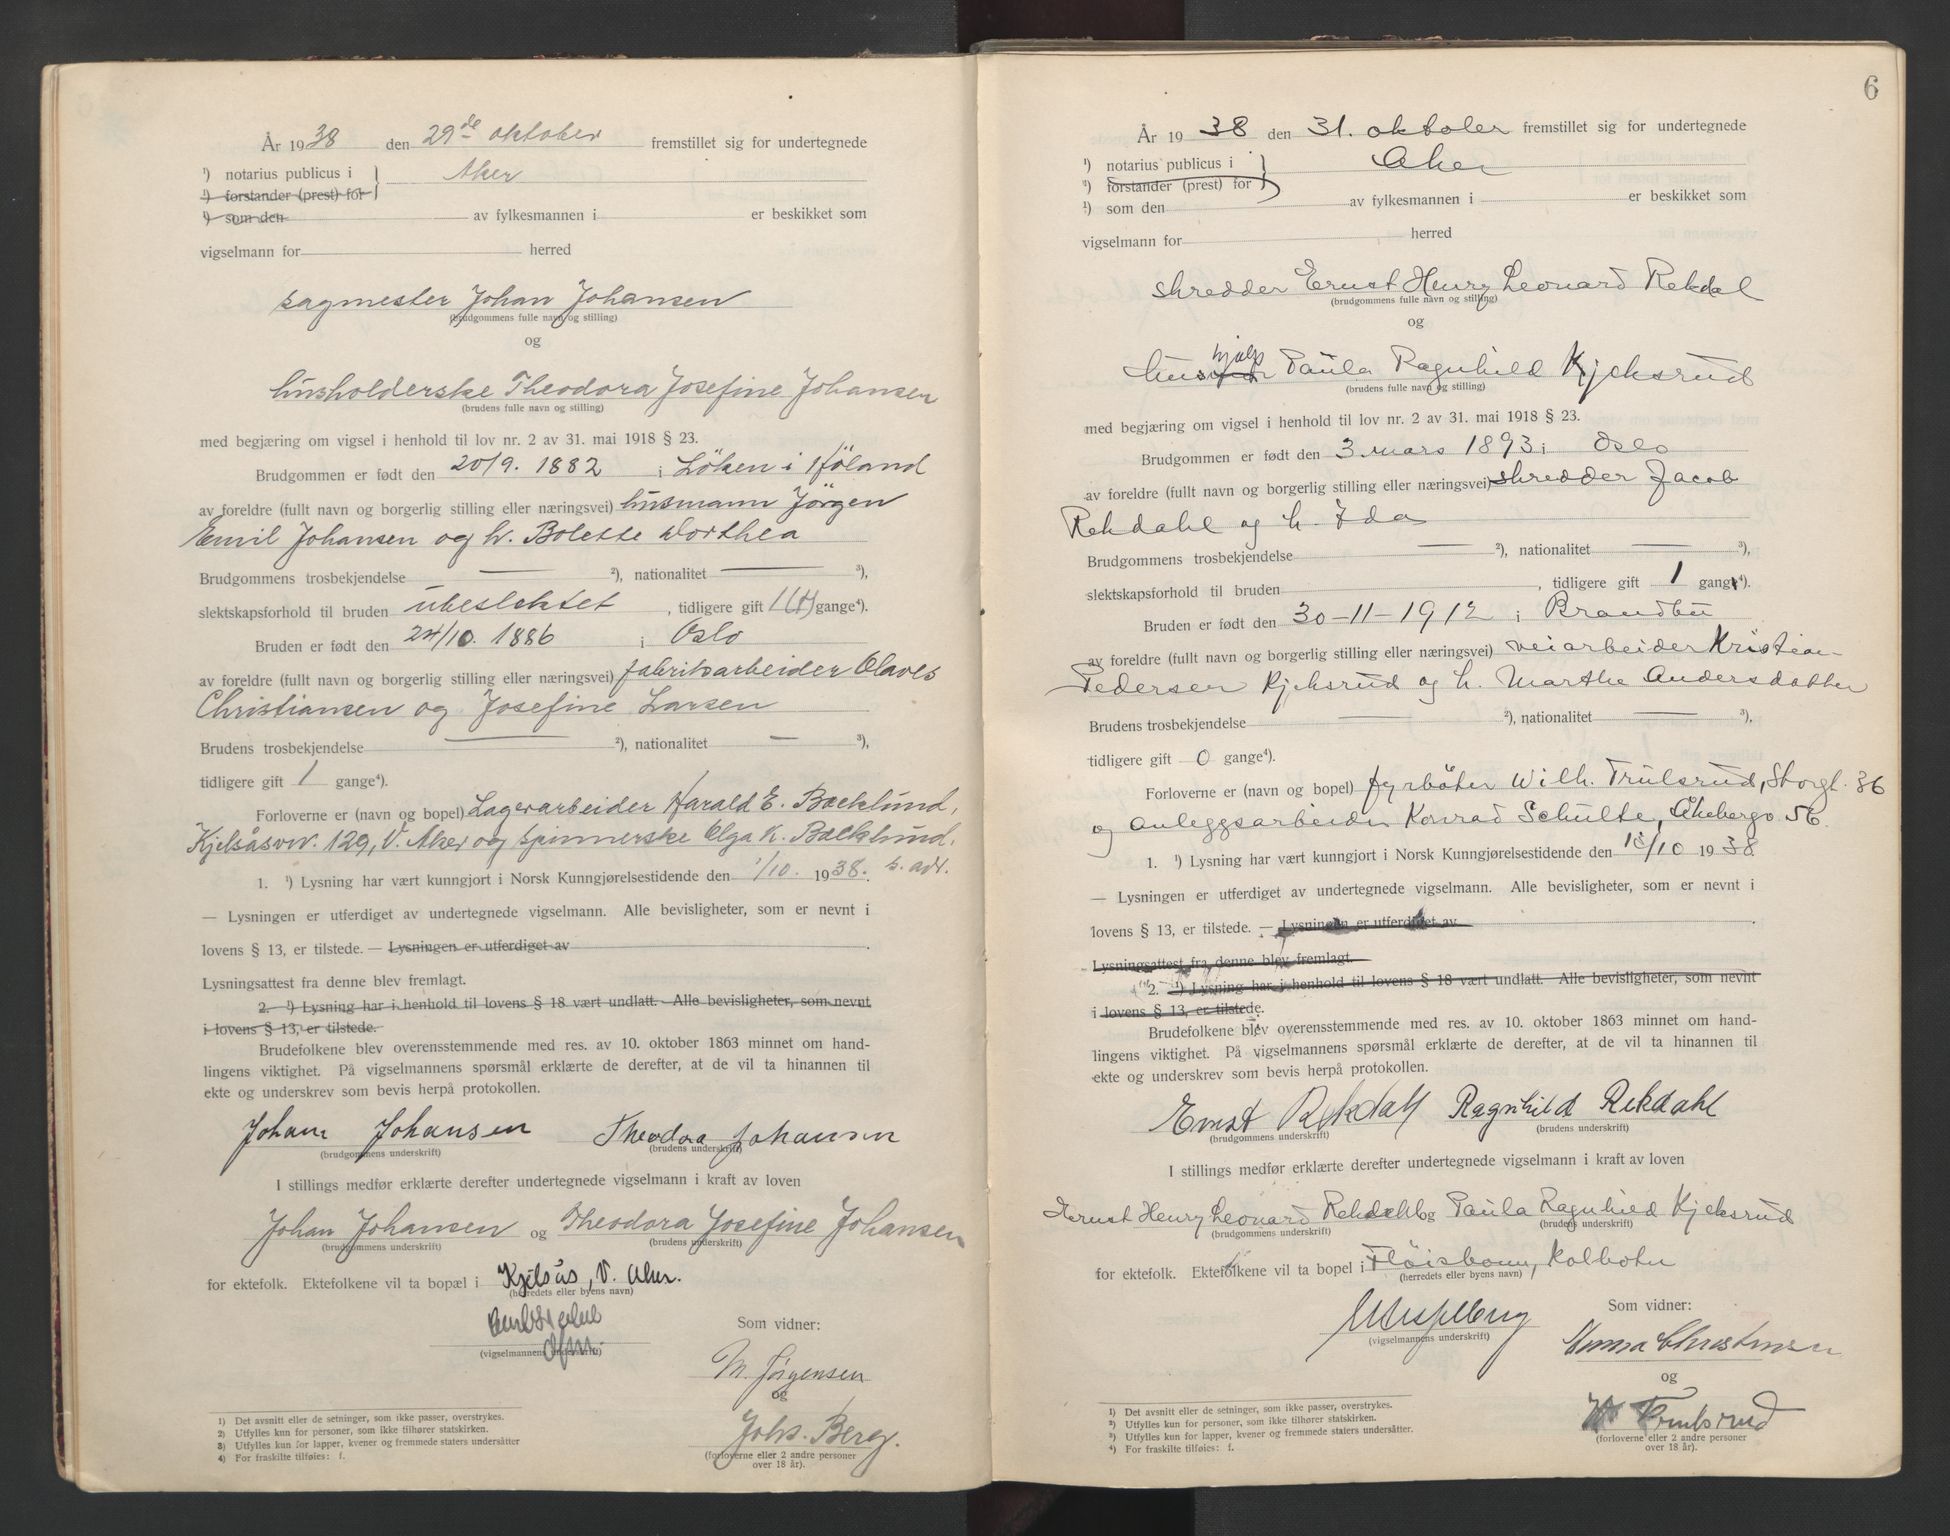 År 1938 den 29de oktober fremstillet sig for undertegnede
¹) notarius publicus i } Aker
¹) forstander (prest) for
¹) som den av fylkesmannen i er beskikket som
vigselmann for herred
sagmester Johan Johansen
(brudgommens fulle navn og stilling)
og
husholderske Theodora Josefine Johansen
(brudens fulle navn og stilling)
med begjæring om vigsel i henhold til lov nr. 2 av 31. mai 1918 § 23.
Brudgommen er født den 20/9. 1882 i Löken i Höland
av foreldre (fullt navn og borgerlig stilling eller næringsvei) husmann Jörgen
Emil Johansen og h. Bolette Dorthea
Brudgommens trosbekjendelse — ²), nationalitet — ³),
slektskapsforhold til bruden ubeslektet, tidligere gift 1 (f) gange⁴).
Bruden er født den 24/10. 1886 i Oslo
av foreldre (fullt navn og borgerlig stilling eller næringsvei) fabrikarbeider Olaves
Christiansen og Josefine Larsen
Brudens trosbekjendelse — ²), nationalitet — ³),
tidligere gift 1 gange⁴).
Forloverne er (navn og bopel) Lagerarbeider Harald E. Bæcklund,
Kjelsåsvn. 129, V. Aker og spinnerske Olga K. Bæcklund,
1. ¹) Lysning har vært kunngjort i Norsk Kunngjørelsestidende den 1/10. 1938. s. adr.
— Lysningen er utferdiget av undertegnede vigselmann. Alle bevisligheter, som er nevnt i
lovens § 13, er tilstede. — Lysningen er utferdiget av
Lysningsattest fra denne blev fremlagt.
2. ¹) Lysning har i henhold til lovens § 18 vært undlatt. Alle bevisligheter, som nevnt
i lovens § 13, er tilstede.
Brudefolkene blev overensstemmende med res. av 10. oktober 1863 minnet om hand-
lingens viktighet. På vigselmannens spørsmål erklærte de derefter, at de vil ta hinannen til
ekte og underskrev som bevis herpå protokollen.
Johan Johansen Theodora Johansen
(brudgommens underskrift) (brudens underskrift)
I stillings medfør erklærte derefter undertegnede vigselmann i kraft av loven
Johan Johansen og Theodora Josefine Johansen
(brudgommens underskrift) (brudens underskrift)
for ektefolk. Ektefolkene vil ta bopæl i Kjelsås, V. Aker.
(herredets eller byens navn)
Som vidner:
(vigselmannens underskrift)
M. Jörgensen
og
Johs. Berg.
(forloverne eller 2 andre personer
over 18 år).
1) Det avsnitt eller de setninger, som ikke passer, overstrykes.
2) Utfylles kun for personer, som ikke tilhører statskirken.
3) Utfylles kun for lapper, kvener og fremmede staters undersåtter
4) For fraskilte tilføies: f.
6
År 1938 den 31. oktober fremstillet sig for undertegnede
¹) notarius publicus i } Aker
¹) forstander (prest) for
¹) som den av fylkesmannen i er beskikket som
vigselmann for herred
skredder Ernst Henry Leonard Rekdal
(brudgommens fulle navn og stilling)
og
hjelp
hus Paula Ragnhild Kjeksrud
(brudens fulle navn og stilling)
med begjæring om vigsel i henhold til lov nr. 2 av 31. mai 1918 § 23.
Brudgommen er født den 3. mars 1893 i Oslo
av foreldre (fullt navn og borgerlig stilling eller næringsvei) skredder Jacob
Rekdahl og h. Ida
Brudgommens trosbekjendelse — ²), nationalitet — ³),
slektskapsforhold til bruden , tidligere gift 1 gang⁴).
Bruden er født den 30-11-1912 i Brandbu
av foreldre (fullt navn og borgerlig stilling eller næringsvei) veiarbeider Kristian
Pedersen Kjeksrud og h. Marthe Andersdatter
Brudens trosbekjendelse — ²), nationalitet — ³),
tidligere gift 0 gange⁴).
Forloverne er (navn og bopel) fyrböter Wilh. Trulsrud, Storgt. 36
og anleggsarbeider Konrad Schulte, Åkebergv. 56.
1. ¹) Lysning har vært kunngjort i Norsk Kunngjørelsestidende den /10 1938.
— Lysningen er utferdiget av undertegnede vigselmann. Alle bevisligheter, som er nevnt i
lovens § 13, er tilstede. — Lysningen er utferdiget av
Lysningsattest fra denne blev fremlagt.
2. ¹) Lysning har i henhold til lovens § 18 vært undlatt. Alle bevisligheter, som nevnt
i lovens § 13, er tilstede.
Brudefolkene blev overensstemmende med res. av 10. oktober 1863 minnet om hand-
lingens viktighet. På vigselmannens spørsmål erklærte de derefter, at de vil ta hinannen til
ekte og underskrev som bevis herpå protokollen.
Ernst Rekdahl Ragnhild Rekdahl
(brudgommens underskrift) (brudens underskrift)
I stillings medfør erklærte derefter undertegnede vigselmann i kraft av loven
Ernst Henry Leonard Rekdahl og Paula Ragnhild Kjeksrud
(brudgommens underskrift) (brudens underskrift)
for ektefolk. Ektefolkene vil ta bopel i Fløisbonn, Kolbotn
(herredets eller byens navn)
Som vidner:
(vigselmannens underskrift)
Christensen
og
W Trulsrud
(forloverne eller 2 andre personer
over 18 år).
1) Det avsnitt eller de setninger, som ikke passer, overstrykes.
2) Utfylles kun for personer, som ikke tilhører statskirken.
3) Utfylles kun for lapper, kvener og fremmede staters undersåtter.
4) For fraskilte tilføies: f.